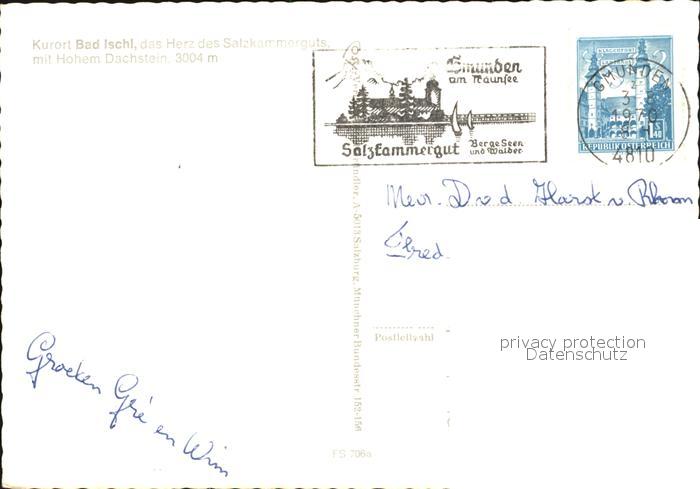 Kurort Bad Ischl, das Herz des Salzkammerguts,
mit Hohem Dachstein, 3004 m
Gmunden
am Traunsee
Salzkammergut
Berge Seen
und Wälder
GMUNDEN
4810
REPUBLIK ÖSTERREICH
Mevr. D v d Horst v. Rhoon
A-5013 Salzburg, Münchner Bundesstr. 152-156
Postleitzahl
privacy protection
Datenschutz
Groeten Gré en Wim
FS 706a